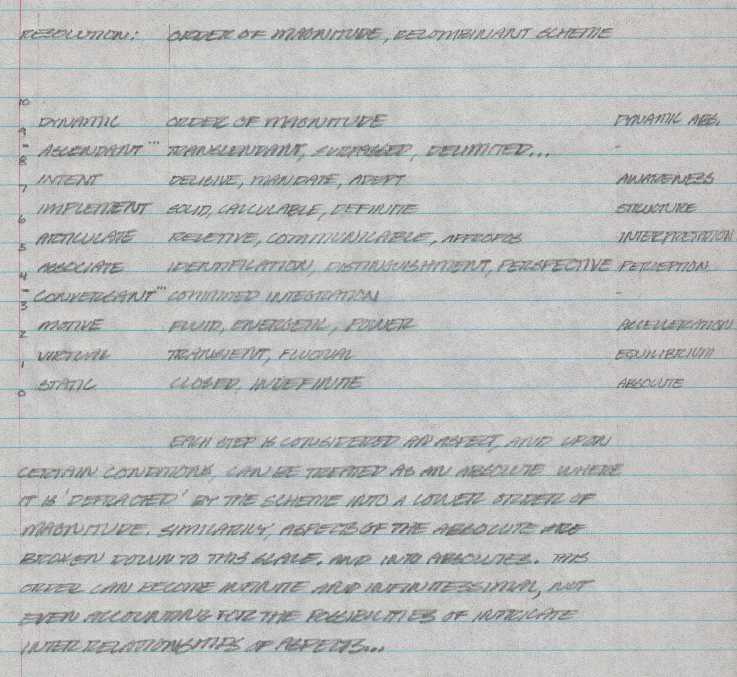 RESOLUTION: ORDER OF MAGNITUDE, RECOMBINANT SCHEME
10
DYNAMIC ORDER OF MAGNITUDE DYNAMIC ABS.
9
"ASCENDANT"" TRANSCENDANT, SURPASSED, DELIMITED... -
8
INTENT DECISIVE, MANDATE, ADEPT AWARENESS
7
IMPLEMENT SOLID, CALCULABLE, DEFINITE STRUCTURE
6
ARTICULATE RELETIVE, COMMUNICABLE, APPROPOS INTERPRETATION
5
ASSOCIATE IDENTIFICATION, DISTINGUISHMENT, PERSPECTIVE PERCEPTION
4
"CONVERGANT"" COMBINED INTEGRATION -
3
MOTIVE FLUID, ENERGETIC, POWER ACCELLERATION
2
VIRTUAL TRANSIENT, FLUCTUAL EQUILIBRIUM
1
STATIC CLOSED, INDEFINITE ABSOLUTE
0
EACH STEP IS CONSIDERED AN ASPECT, AND UPON
CERTAIN CONDITIONS, CAN BE TREATED AS AN ABSOLUTE WHERE
IT IS 'DEFRACTED' BY THE SCHEME INTO A LOWER ORDER OF
MAGNITUDE. SIMILARILY, ASPECTS OF THE ABSOLUTE ARE
BROKEN DOWN TO THIS SCALE, AND INTO ABSOLUTES. THIS
ORDER CAN BECOME INFINITE AND INFINITESSIMAL, NOT
EVEN ACCOUNTING FOR THE POSSIBILITIES OF INTRICATE
INTERRELATIONSHIPS OF ASPECTS...